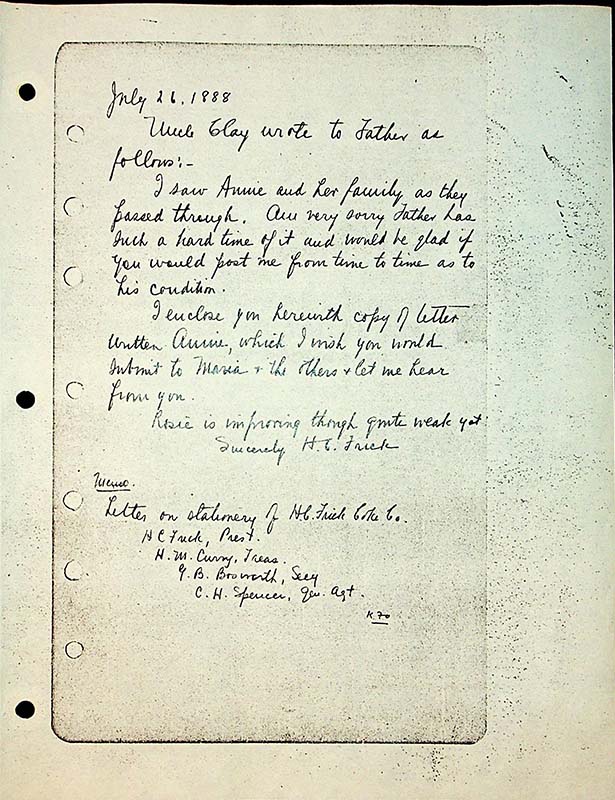 July 26, 1888
Uncle Clay wrote to Father as
follows:-
I saw Annie and her family as they
passed through. Am very sorry Father has
such a hard time of it and would be glad if
you would post me from time to time as to
his condition.
I enclose you herewith copy of letter
written Annie, which I wish you would
submit to Maria + the others + let me hear
from you.
Rosie is improving though quite weak yet
Sincerely H. C. Frick
Memo.
Letter on stationery of H.C. Frick Coke Co.
H C Frick, Prest.
H. M. Curry, Treas.
G. B. Bosworth, Secy
C. H. Spencer, Gen. Agt.
K 70